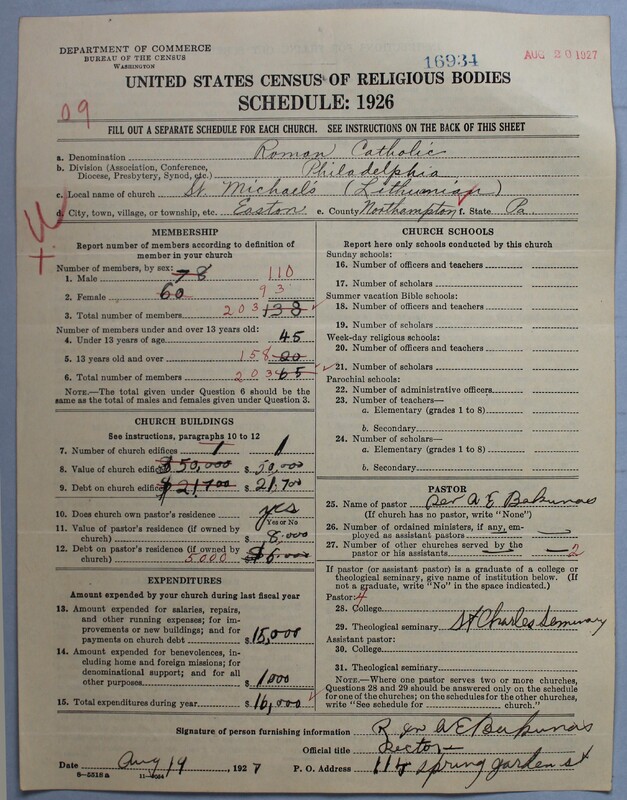 DEPARTMENT OF COMMERCE
BUREAU OF THE CENSUS
WASHINGTON
16934
AUG 20 1927
UNITED STATES CENSUS OF RELIGIOUS BODIES
SCHEDULE: 1926
09
FILL OUT A SEPARATE SCHEDULE FOR EACH CHURCH. SEE INSTRUCTIONS ON THE BACK OF THIS SHEET
a. Denomination Roman Catholic
b. Division (Association, Conference, Diocese, Presbytery, Synod, etc.) Philadelphia
c. Local name of church St. Michael's (Lithunian)
d. City, town, village, or township, etc. Easton e. County Northampton f. State Pa.
MEMBERSHIP
Report number of members according to definition of
member in your church
Number of members, by sex:
1. Male 78 110
2. Female 60 93
3. Total number of members 203 138
Number of members under and over 13 years old:
4. Under 13 years of age 45
5. 13 years old and over 158 20
6. Total number of members 203 65
NOTE.—The total given under Question 6 should be
same as the total of males and females given under Question 3.
CHURCH BUILDINGS
See instructions, paragraphs 10 to 12
7. Number of church edifices 1 1
8. Value of church edifices $50,000 $50,000
9. Debt on church edifices $21,700 $21,700
10. Does church own pastor's residence yes
Yes or No
11. Value of pastor's residence (if owned by
church) $8,000
12. Debt on pastor's residence (if owned by
church) 5000 $6,000
EXPENDITURES
Amount expended by your church during last fiscal year
13. Amount expended for salaries, repairs,
and other running expenses; for im-
provements or new buildings; and for
payments on church debt $15,000
14. Amount expended for benevolences, in-
cluding home and foreign missions; for
denominational support; and for all
other purposes $1,000
15. Total expenditures during year $16,000
CHURCH SCHOOLS
Report here only schools conducted by this church
Sunday schools:
16. Number of officers and teachers
17. Number of scholars
Summer vacation Bible schools:
18. Number of officers and teachers
19. Number of scholars
Week-day religious schools:
20. Number of officers and teachers
21. Number of scholars
Parochial schools:
22. Number of administrative officers
23. Number of teachers—
a. Elementary (grades 1 to 8)
b. Secondary
24. Number of scholars—
a. Elementary (grades 1 to 8)
b. Secondary
PASTOR
25. Name of pastor Rev A E Bakunas
(If church has no pastor, write "None")
26. Number of ordained ministers, if any, em-
ployed as assistant pastors
27. Number of other churches served by the
pastor or his assistants 2
If pastor (or assistant pastor) is a graduate of a college or
theological seminary, give name of institution below. (If
not a graduate, write "No" in the space indicated.)
Pastor: 4
28. College
29. Theological seminary St Charles Seminary
Assistant pastor:
30. College
31. Theological seminary
NOTE.—Where one pastor serves two or more churches,
Questions 28 and 29 should be answered only on the schedule
for one of the churches; on the schedules for the other churches,
write "See schedule for church."
Signature of person furnishing information Rev A E Bakunas
Official title Rector
Date Aug 19 1927 P. O. Address 115 Spring garden st
8—5518a 11—9064